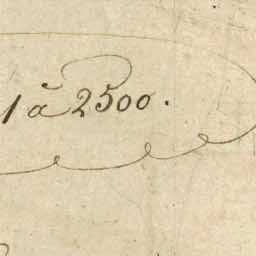 1 à 2500.